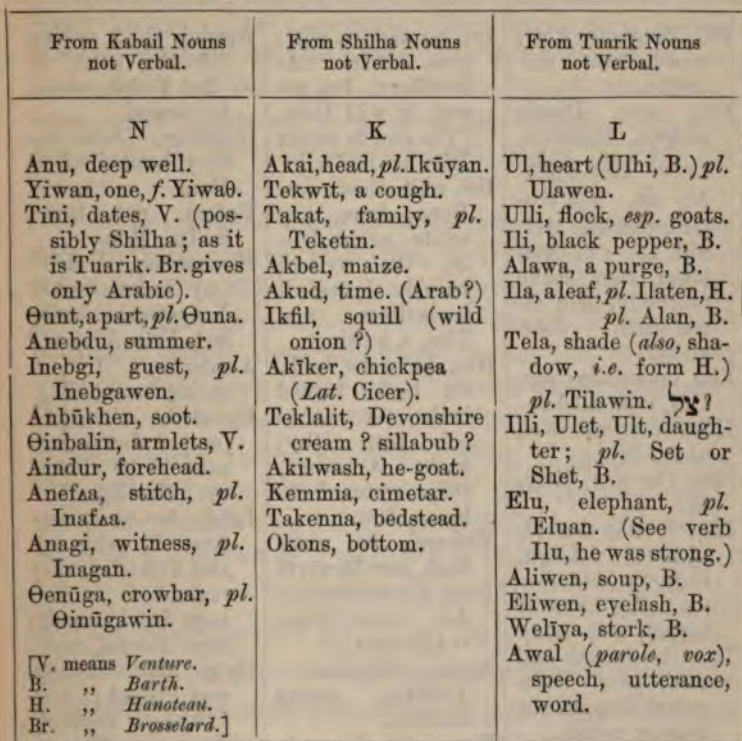 From Kabail Nouns
not Verbal.
N
Anu, deep well.
Yiwan, one, f. Yiwaθ.
Tini, dates, V. (pos-
sibly Shilha; as it
is Tuarik. Br. gives
only Arabic).
Θunt, apart, pl. Θuna.
Anebdu, summer.
Inebgi, guest, pl.
Inebgawen.
Anbūkhen, soot.
Θinbalin, armlets, V.
Aindur, forehead.
Anefᴀa, stitch, pl.
Inafᴀa.
Anagi, witness, pl.
Inagan.
Θenūga, crowbar, pl.
Θinūgawin.
[V. means Venture.
B. ,, Barth.
H. ,, Hanoteau.
Br. ,, Brosselard.]
From Shilha Nouns
not Verbal.
K
Akai, head, pl. Ikūyan.
Tekwīt, a cough.
Takat, family, pl.
Teketin.
Akbel, maize.
Akud, time. (Arab?)
Ikfil, squill (wild
onion ?)
Akīker, chickpea
(Lat. Cicer).
Teklalit, Devonshire
cream ? sillabub ?
Akilwash, he-goat.
Kemmia, cimetar.
Takenna, bedstead.
Okons, bottom.
From Tuarik Nouns
not Verbal.
L
Ul, heart (Ulhi, B.) pl.
Ulawen.
Ulli, flock, esp. goats.
Ili, black pepper, B.
Alawa, a purge, B.
Ila, a leaf, pl. Ilaten, H.
pl. Alan, B.
Tela, shade (also, sha-
dow, i.e. form H.)
pl. Tilawin. צל?
Illi, Ulet, Ult, daugh-
ter; pl. Set or
Shet, B.
Elu, elephant, pl.
Eluan. (See verb
Ilu, he was strong.)
Aliwen, soup, B.
Eliwen, eyelash, B.
Welīya, stork, B.
Awal (parole, vox),
speech, utterance,
word.